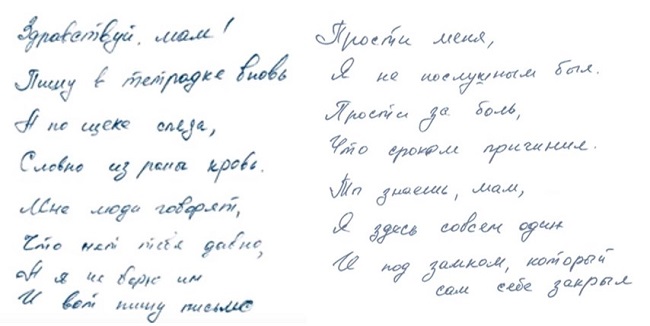 Здравствуй, мам!
Пишу в тетрадке вновь
А по щеке слеза,
Словно из раны кровь.
Мне люди говорят,
Что нет тебя давно,
А я не верю им
И вот пишу письмо
Прости меня,
Я не послушным был.
Прости за боль,
Что сроком причинил.
Ты знаешь, мам,
Я здесь совсем один
И под замком, который
сам себе закрыл